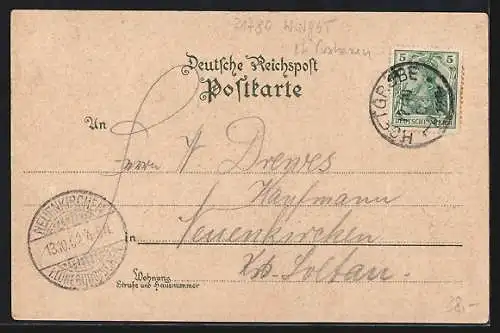 21780 Wingst
Deutsche Reichspost
Postkarte
5 5
DEUTSCHES REICH
HÖFTGRUBE
An
Herrn W Drewes
Kaufmann
in Neuenkirchen
Kr. Soltau.
NEUENKIRCHEN
13.10.02
Wohnung
Straße und Hausnummer
38,-